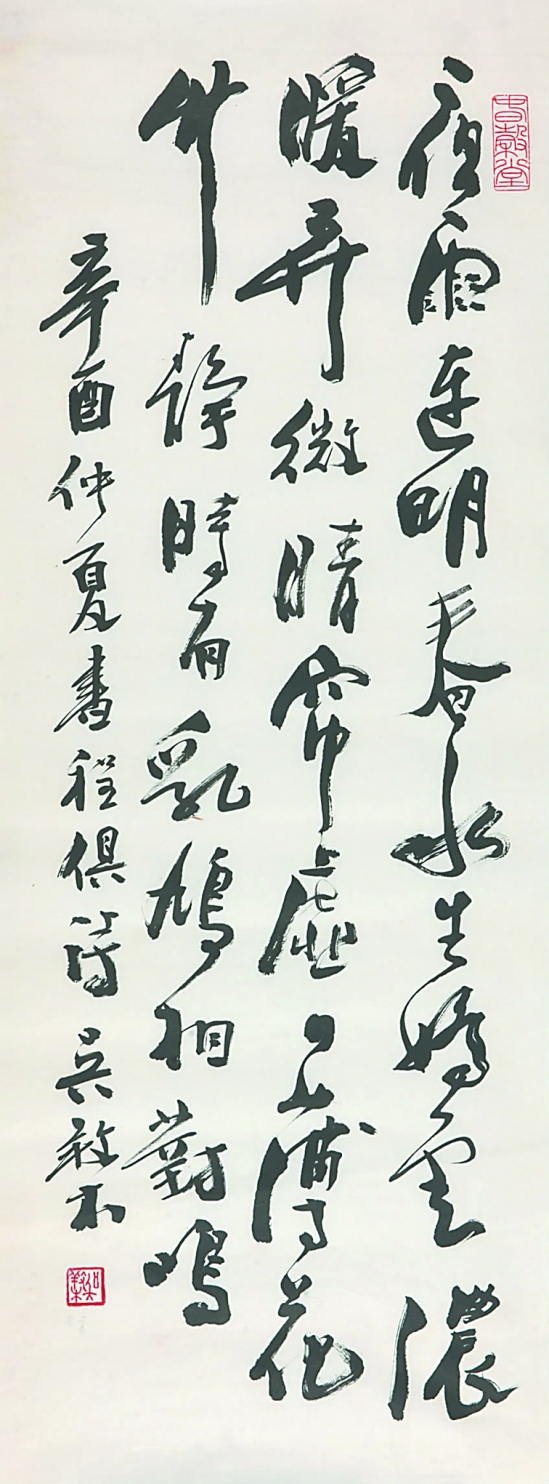 夜雨連明春水生嬌雲濃
暖弄微晴帘虛日薄花
竹靜時有乳鳩相對鳴
辛酉仲夏書程俱詩 吳羖木